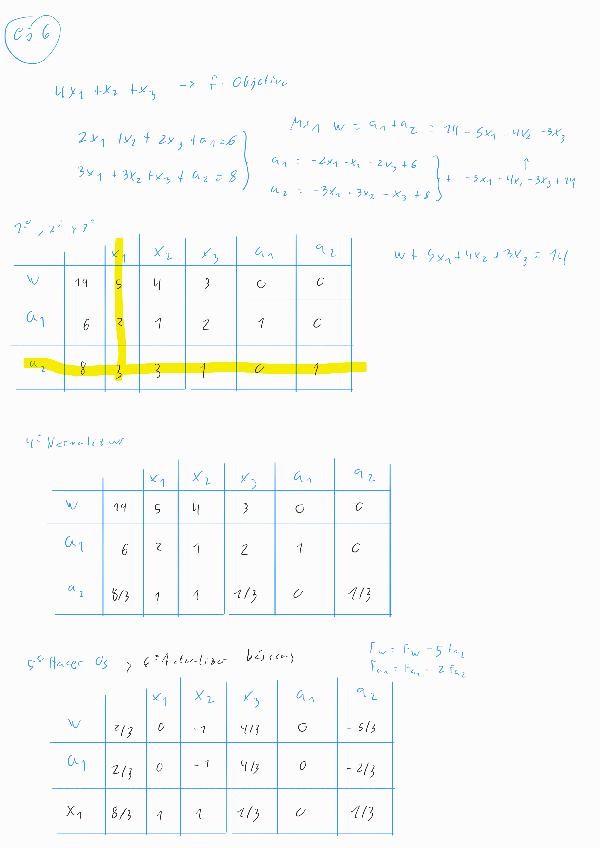 Ej 6
4x₁ + x₂ + x₃ → f. Objetivo
2x₁ + x₂ + 2x₃ + a₁ = 6
3x₁ + 3x₂ + x₃ + a₂ = 8
Min w = a₁ + a₂ = 14 - 5x₁ - 4x₂ - 3x₃
a₁ = -2x₁ - x₂ - 2x₃ + 6
a₂ = -3x₁ - 3x₂ - x₃ + 8
+ -5x₁ - 4x₂ - 3x₃ + 14
1º, 2º y 3º
w + 5x₁ + 4x₂ + 3x₃ = 14
x₁ x₂ x₃ a₁ a₂
w 14 5 4 3 0 0
a₁ 6 2 1 2 1 0
a₂ 8 3 3 1 0 1
4º Normalizar
x₁ x₂ x₃ a₁ a₂
w 14 5 4 3 0 0
a₁ 6 2 1 2 1 0
a₂ 8/3 1 1 1/3 0 1/3
5º Hacer 0s y 6º Actualizar básicas
Fw = Fw - 5Fa₂
Fa₁ = Fa₁ - 2Fa₂
x₁ x₂ x₃ a₁ a₂
w 2/3 0 -1 4/3 0 -5/3
a₁ 2/3 0 -1 4/3 0 -2/3
x₁ 8/3 1 1 1/3 0 1/3